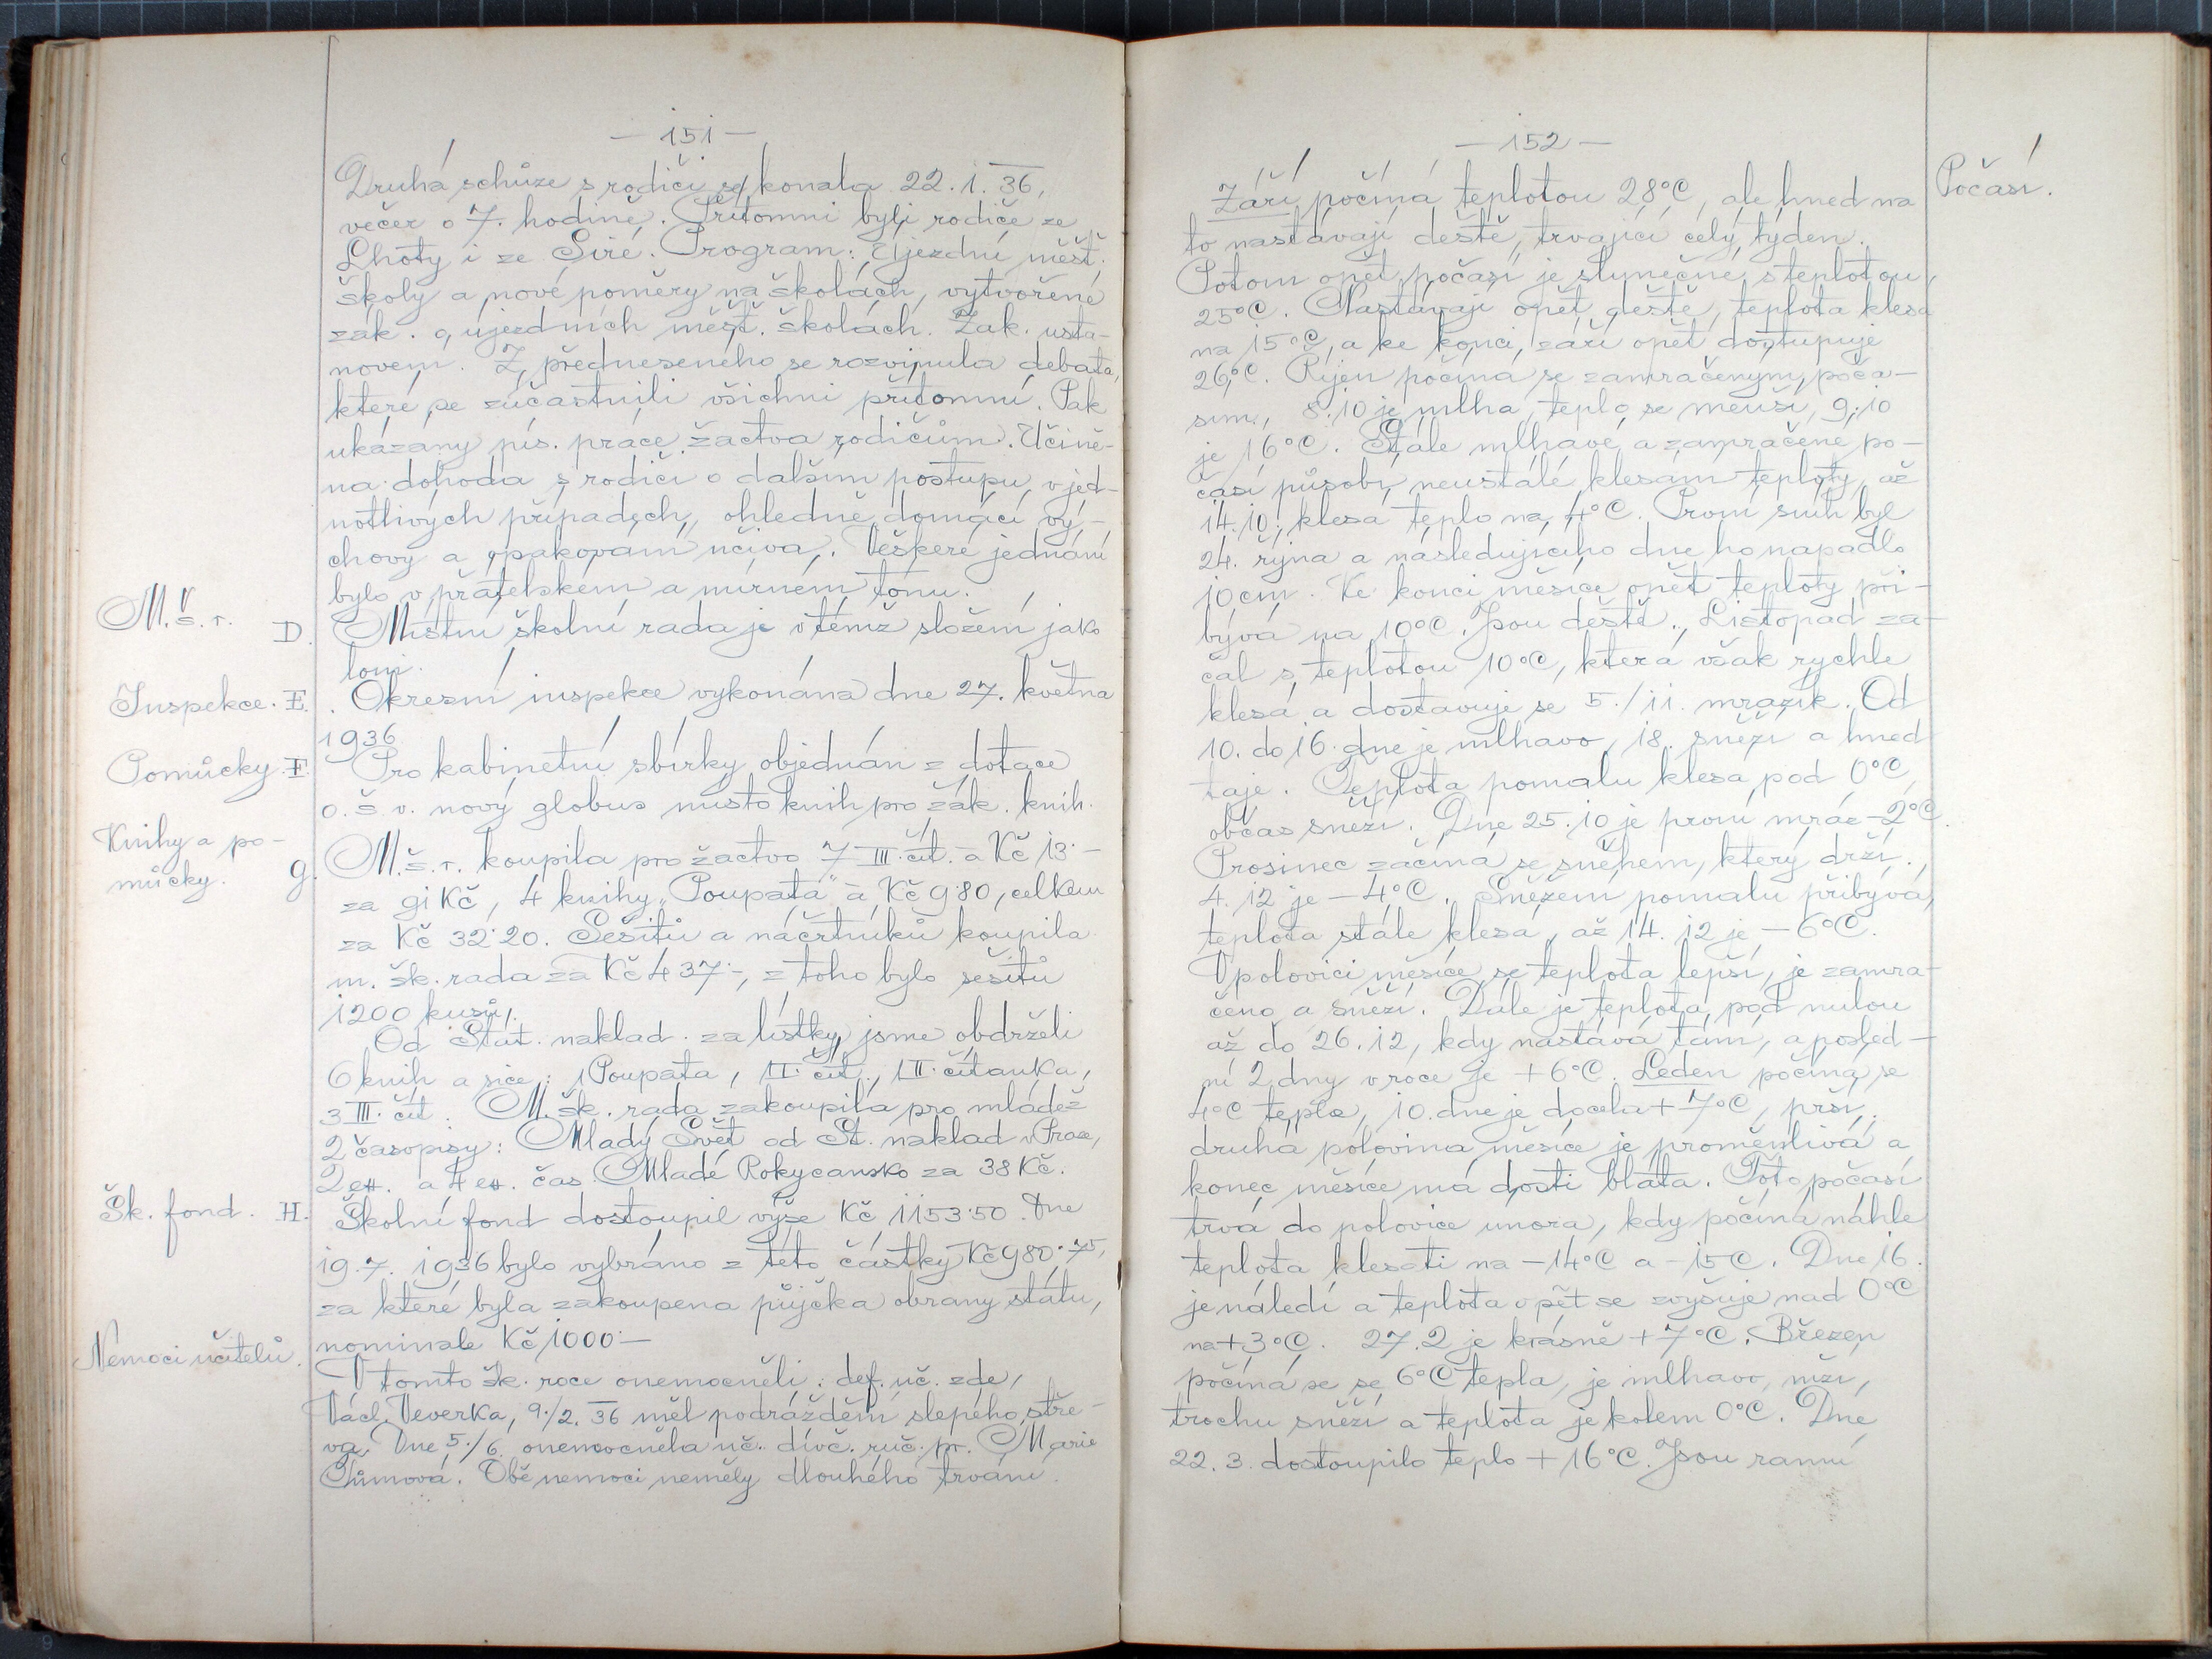 — 151 —
Druhá schůze s rodiči se konala 22. 1. 36,
večer o 7. hodině. Přítomni byli rodiče ze
Lhoty i ze Siré. Program: Újezdní měšť.
školy a nové poměry na školách, vytvořené
zák. o újezdních měšť. školách. Zák. usta-
novem. Z předneseného se rozvinula debata,
které se zúčastnili všichni přítomní. Pak
ukázány pís. práce žactva rodičům. Učině-
na dohoda s rodiči o dalším postupu v jed-
notlivých případech, ohledně domácí vý-
chovy a opakování učiva. Veškeré jednání
bylo v přátelském a mírném tónu.
M. š. r. D. Místní školní rada je v témž složení jako
loni.
Inspekce. E. Okresní inspekce vykonána dne 27. května
1936
Pomůcky. F. Pro kabinetní sbírky objednán z dotace
o. š. v. nový globus místo knih pro žák. knih.
Knihy a po-
můcky. G. M. š. r. koupila pro žactvo 7 III. čít. à Kč 13·–
za 91 Kč, 4 knihy „Poupata" à Kč 9·80, celkem
za Kč 32·20. Sešitů a náčrtníků koupila
m. šk. rada za Kč 437·–, z toho bylo sešitů
1200 kusů.
Od Stát. naklad. za lístky jsme obdrželi
6 knih a sice: 1 Poupata, 1 I. čít., 1 II. čítanka,
3 III. čít. M. šk. rada zakoupila pro mládež
2 časopisy: Mladý Svět od St. naklad v Praze,
2 ex. a 4 ex. čas. Mladé Rokycansko za 38 Kč.
Šk. fond. H. Školní fond dostoupil výše Kč 1153·50. Dne
19. 7. 1936 bylo vybráno z této částky Kč 980·75,
za které byla zakoupena půjčka obrany státu,
nominale Kč 1000·–
Nemoci učitelů. V tomto šk. roce onemocněli: def. uč. zde,
Václ. Veverka, 9./2. 36 měl podráždění slepého stře-
va. Dne 5./6. onemocněla uč. dívč. ruč. pr. Marie
Tůmová. Obě nemoci neměly dlouhého trvání.
— 152 —
Počasí.
Září počíná teplotou 28°C, ale hned na
to nastávají deště, trvající celý týden.
Potom opět počasí je slunečné s teplotou
25°C. Nastávají opět deště, teplota klesá
na 15°C, a ke konci září opět dostupuje
26°C. Říjen počíná se zamračeným poča-
sím, 8. 10 je mlha, teplo se menší, 9. 10
je 16°C. Stále mlhavé a zamračené po-
časí působí neustálé klesání teploty, až
14. 10. klesá teplo na 4°C. První sníh byl
24. října a následujícího dne ho napadlo
10 cm. Ke konci měsíce opět teploty při-
bývá na 10°C. Jsou deště. Listopad za-
čal s teplotou 10°C, která však rychle
klesá a dostavuje se 5./11. mrazík. Od
10. do 16. dne je mlhavo, 18. sněží a hned
taje. Teplota pomalu klesá pod 0°C,
občas sněží. Dne 25. 10 je první mráz -2°C.
Prosinec začíná se sněhem, který drží.
4. 12 je -4°C. Sněžení pomalu přibývá,
teplota stále klesá, až 14. 12 je -6°C.
V polovici měsíce se teplota lepší, je zamra-
čeno a sněží. Dále je teplota pod nulou
až do 26. 12, kdy nastává tání, a posled-
ní 2 dny v roce je +6°C. Leden počíná se
4°C tepla, 10. dne je docela +7°C, prší,
druhá polovina měsíce je proměnlivá a
konec měsíce má dosti bláta. Toto počasí
trvá do polovice února, kdy počíná náhle
teplota klesati na -14°C a -15 C. Dne 16.
je náledí a teplota opět se zvyšuje nad 0°C
na +3°C. 27. 2 je krásně +7°C. Březen
počíná se se 6°C tepla, je mlhavo, mží,
trochu sněží a teplota je kolem 0°C. Dne
22. 3. dostoupilo teplo +16°C. Jsou ranní